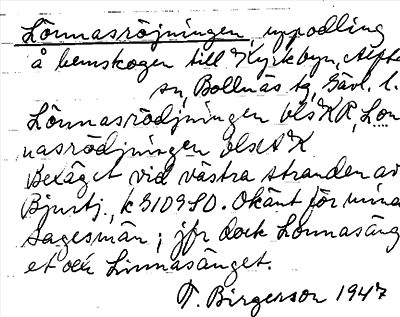 Lönnasröjningen, uppodling
å hemskogen till Kyrkbyn, Alfta
sn, Bollnäs tg, Gävl. l.
Lönnasrödjningen blsKR, Lön
nasrödjningen
Beläget vid västra stranden av
Bjurtj., k 3109 SO. Okänt för mina
sagesmän; jfr dock Lönnasäng
et och Linnasänget.
T. Birgerson 1947